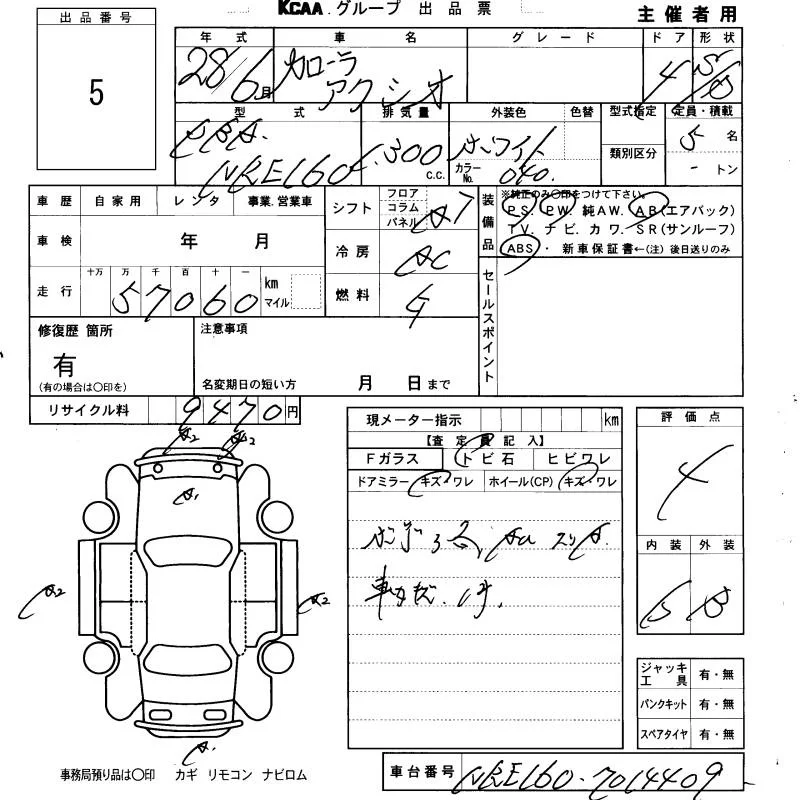 KCAA グループ 出品票
主催者用
出品番号
5
年式 車名 グレード ドア 形状
28/6月 カローラ アクシオ 4
型式 排気量 外装色 色替 型式指定 定員・積載
類別区分
DBA-NRE160 c.c. ホワイト カラーNo. 040 5名
トン
車歴 自家用 レンタ 事業.営業車
車検 年 月
走行 十万 万 千 百 十 一
57060 km マイル
シフト フロア コラム パネル AT
冷房 AC
燃料 G
装備品 ※純正のみ〇印をつけて下さい。
PS. PW. 純AW. AB(エアバック)
TV. ナビ. カワ. SR(サンルーフ)
ABS ・ 新車保証書←(注) 後日送りのみ
セールスポイント
修復歴 箇所
有
(有の場合は〇印を)
注意事項
名変期日の短い方 月 日まで
リサイクル料 9470円
現メーター指示 km
【査定員記入】
Fガラス トビ石 ヒビワレ
ドアミラー キズ・ワレ ホイール(CP) キズ・ワレ
評価点
4
内装 外装
B
A2 A2
A1
A2 A2
A1
ジャッキ 工具 有・無
パンクキット 有・無
スペアタイヤ 有・無
事務局預り品は〇印 カギ リモコン ナビロム
車台番号 NRE160-7014409